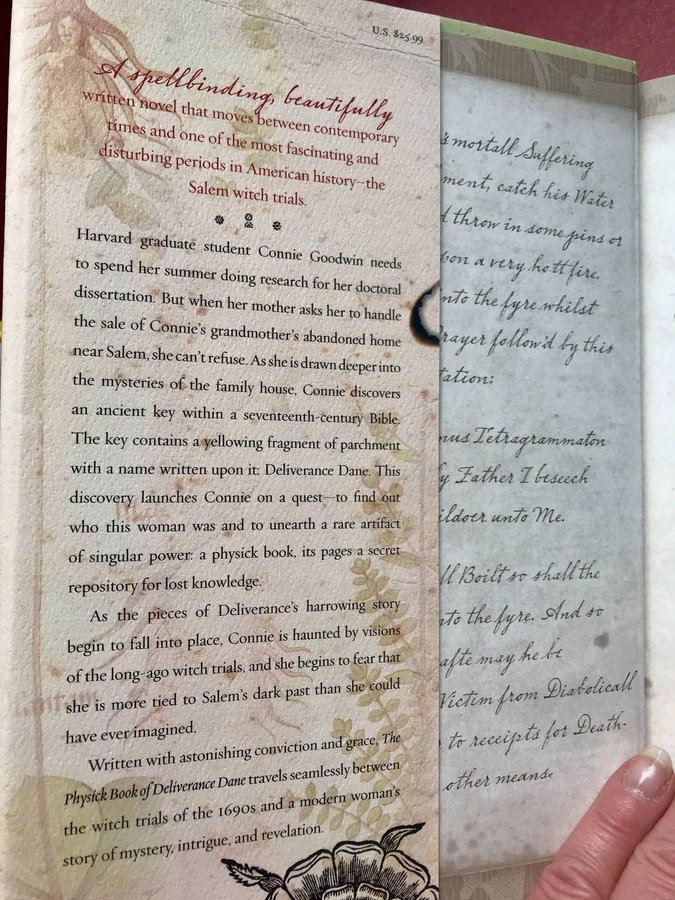 U.S. $25.99
A spellbinding, beautifully
written novel that moves between contemporary
times and one of the most fascinating and
disturbing periods in American history—the
Salem witch trials.
Harvard graduate student Connie Goodwin needs
to spend her summer doing research for her doctoral
dissertation. But when her mother asks her to handle
the sale of Connie's grandmother's abandoned home
near Salem, she can't refuse. As she is drawn deeper into
the mysteries of the family house, Connie discovers
an ancient key within a seventeenth-century Bible.
The key contains a yellowing fragment of parchment
with a name written upon it: Deliverance Dane. This
discovery launches Connie on a quest—to find out
who this woman was and to unearth a rare artifact
of singular power: a physick book, its pages a secret
repository for lost knowledge.
As the pieces of Deliverance's harrowing story
begin to fall into place, Connie is haunted by visions
of the long-ago witch trials, and she begins to fear that
she is more tied to Salem's dark past than she could
have ever imagined.
Written with astonishing conviction and grace, The
Physick Book of Deliverance Dane travels seamlessly between
the witch trials of the 1690s and a modern woman's
story of mystery, intrigue, and revelation.
's mortall Suffering
ment, catch his Water
d throw in some pins or
pon a very hott fire.
nto the fyre whilst
Prayer follow'd by this
tation:
nus Tetragrammaton
ly Father I beseech
ildoer unto Me.
ll Boilt so shall the
nto the fyre. And so
afte may he be
Victim from Diabolicall
to receipts for Death-
other means.